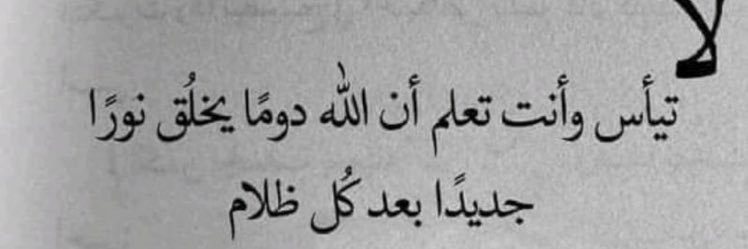 لا
تيأس وأنت تعلم أن الله دومًا يخلُق نورًا
جديدًا بعد كُل ظلام